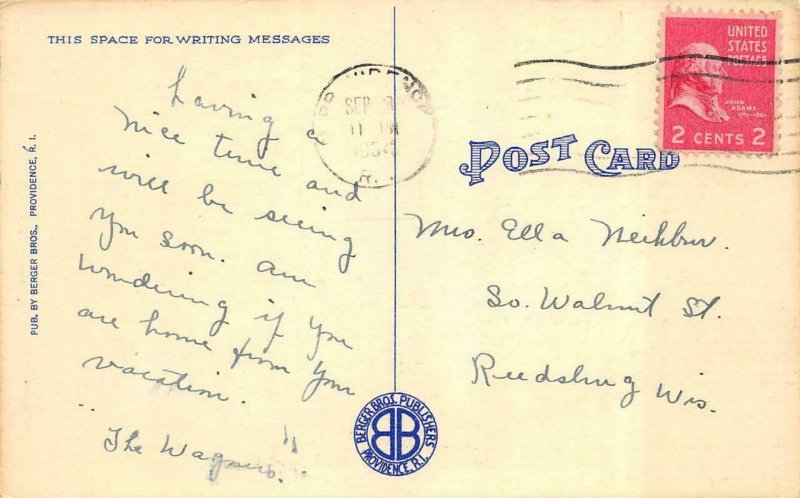 THIS SPACE FOR WRITING MESSAGES
Having a
nice time and
will be seeing
you soon. am
wondering if you
are home from your
vacation.
The Wagners.
PUB. BY BERGER BROS., PROVIDENCE, R. I.
BERGER BROS. PUBLISHERS
BB
PROVIDENCE, R.I.
SEP
11
R.I.
UNITED
STATES
POSTAGE
JOHN
ADAMS
2 CENTS 2
POST CARD
Mrs. Ella
So. Walnut St.
Reedsburg Wis.